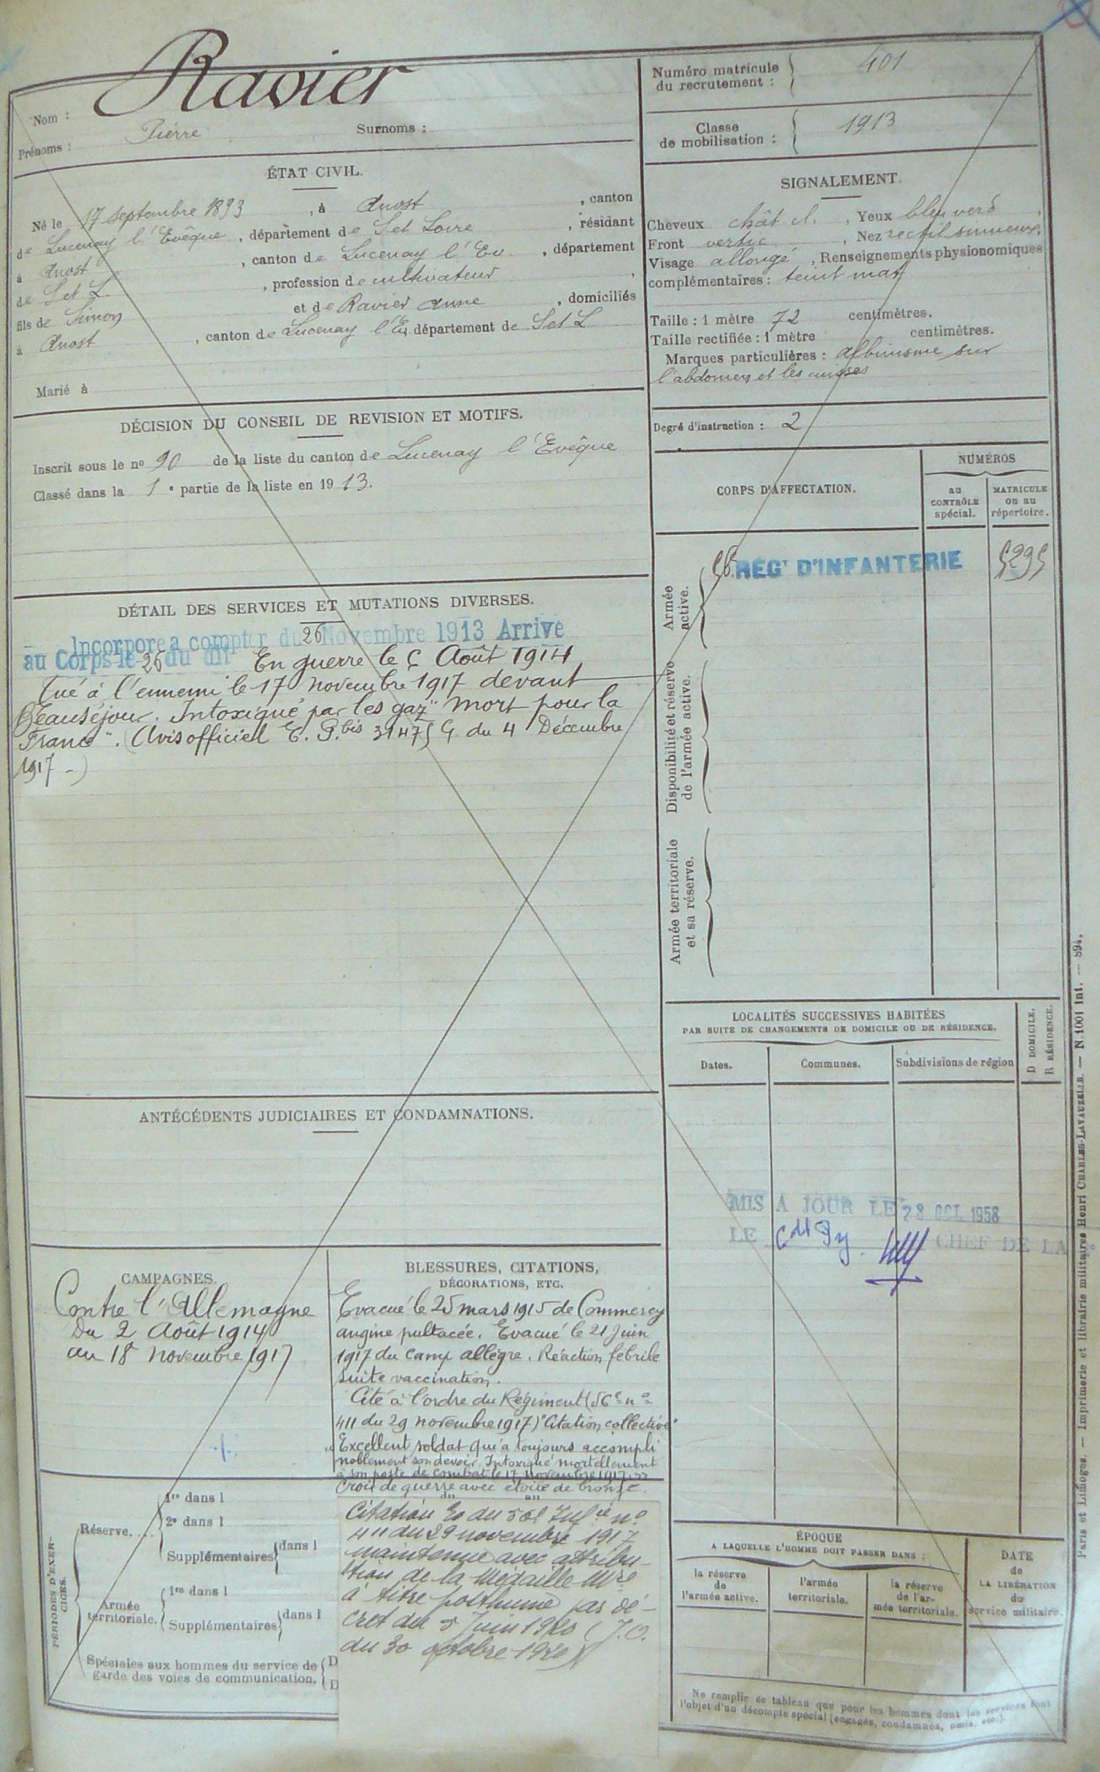 Nom : Ravier
Prénoms : Pierre Surnoms :
ÉTAT CIVIL.
Né le 17 septembre 1893, à Anost, canton
de Lucenay l'Evêque, département de S et Loire, résidant
à Anost, canton de Lucenay l'Ev, département
de S et L, profession de cultivateur,
fils de Simon et de Ravier Anne, domiciliés
à Anost, canton de Lucenay l'E, département de S et L
Marié à
DÉCISION DU CONSEIL DE REVISION ET MOTIFS.
Inscrit sous le no 90 de la liste du canton de Lucenay l'Evêque
Classé dans la 1e partie de la liste en 1913.
DÉTAIL DES SERVICES ET MUTATIONS DIVERSES.
Incorporé à compter du 26 Novembre 1913 Arrivé
au Corps le 26 du dit En guerre le 5 Août 1914
Tué à l'ennemi le 17 novembre 1917 devant
Beauséjour. Intoxiqué par les gaz "mort pour la
France". (Avis officiel E. P. bis 31475 G. du 4 Décembre
1917 -)
ANTÉCÉDENTS JUDICIAIRES ET CONDAMNATIONS.
CAMPAGNES.
Contre l'Allemagne
Du 2 Août 1914
au 18 novembre 1917
BLESSURES, CITATIONS,
DÉCORATIONS, ETC.
Evacué le 25 mars 1915 de Commercy
angine pultacée. Evacué le 21 Juin
1917 du camp allègre. Réaction febrile
suite vaccination.
Cité à l'ordre du Régiment (56e no
411 du 29 novembre 1917) "Citation collective"
"Excellent soldat qui a toujours accompli
noblement son devoir. Intoxiqué mortellement
à son poste de combat le 17 novembre 1917."
Croix de guerre avec étoile de bronze.
Citation
411 du 29 novembre 1917
maintenue avec attribu-
tion de la médaille Mre
à titre posthume par dé-
cret du 5 Juin 1920 (J.O.
du 30 octobre 1920)
PÉRIODES D'EXER-
CICES.
Réserve....
1re dans l
2e dans l
Supplémentaires dans l
Armée
territoriale.
1re dans l
Supplémentaires dans l
Spéciales aux hommes du service de
garde des voies de communication.
D
D
Numéro matricule
du recrutement : 401
Classe
de mobilisation : 1913
SIGNALEMENT.
Cheveux chât cl., Yeux bleu verd,
Front vertic, Nez rectil sinueux,
Visage allongé, Renseignements physionomiques
complémentaires : teint mat
Taille : 1 mètre 72 centimètres.
Taille rectifiée : 1 mètre centimètres.
Marques particulières : albinisme sur
l'abdomen et les cuisses
Degré d'instruction : 2
CORPS D'AFFECTATION.
NUMÉROS
AU
CONTRÔLE
spécial.
MATRICULE
OU AU
répertoire.
Armée
active.
56 REGt D'INFANTERIE 5295
Disponibilité et réserve
de l'armée active.
Armée territoriale
et sa réserve.
LOCALITÉS SUCCESSIVES HABITÉES
PAR SUITE DE CHANGEMENTS DE DOMICILE OU DE RÉSIDENCE.
Dates.
Communes.
Subdivisions de région
D DOMICILE.
R RÉSIDENCE.
MIS A JOUR LE 28 OCT. 1958
LE CHEF DE LA
ÉPOQUE
A LAQUELLE L'HOMME DOIT PASSER DANS :
la réserve
de
l'armée active.
l'armée
territoriale.
la réserve
de l'ar-
mée territoriale.
DATE
de
LA LIBÉRATION
du
service militaire.
Ne remplir ce tableau que pour les hommes dont les services font
l'objet d'un décompte spécial (engagés, condamnés, omis, etc.).
Paris et Limoges. — Imprimerie et librairie militaires Henri CHARLES-LAVAUZELLE. — N. 1001 Int. — 894.